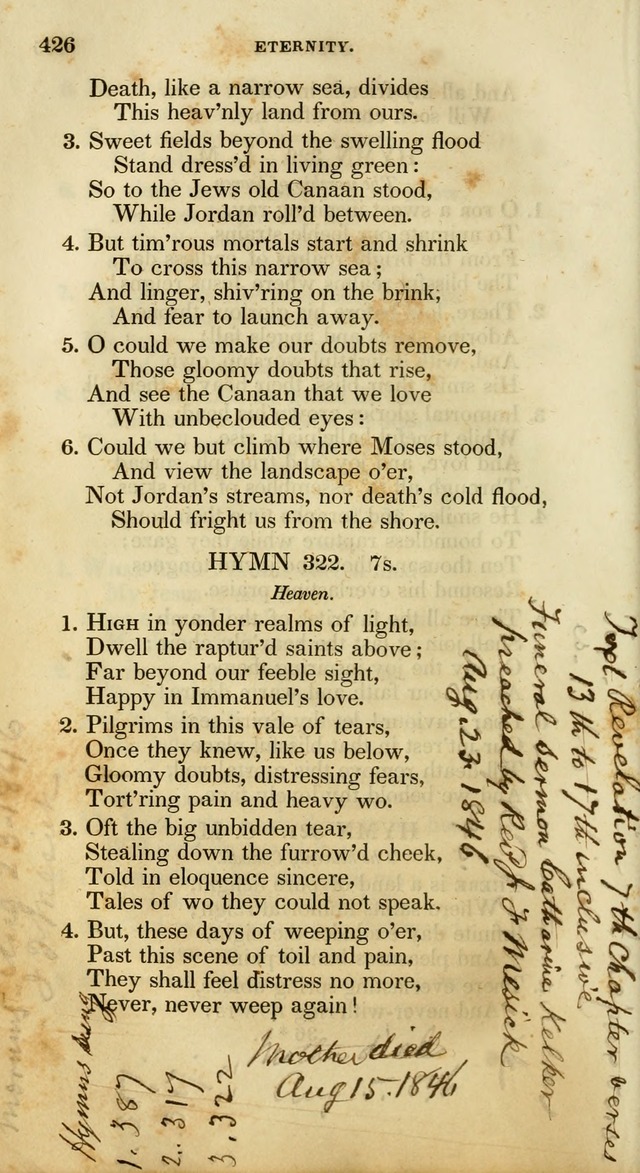 426 ETERNITY.
Death, like a narrow sea, divides
This heav'nly land from ours.
3. Sweet fields beyond the swelling flood
Stand dress'd in living green:
So to the Jews old Canaan stood,
While Jordan roll'd between.
4. But tim'rous mortals start and shrink
To cross this narrow sea;
And linger, shiv'ring on the brink,
And fear to launch away.
5. O could we make our doubts remove,
Those gloomy doubts that rise,
And see the Canaan that we love
With unbeclouded eyes:
6. Could we but climb where Moses stood,
And view the landscape o'er,
Not Jordan's streams, nor death's cold flood,
Should fright us from the shore.
HYMN 322. 7s.
Heaven.
1. HIGH in yonder realms of light,
Dwell the raptur'd saints above;
Far beyond our feeble sight,
Happy in Immanuel's love.
2. Pilgrims in this vale of tears,
Once they knew, like us below,
Gloomy doubts, distressing fears,
Tort'ring pain and heavy wo.
3. Oft the big unbidden tear,
Stealing down the furrow'd cheek,
Told in eloquence sincere,
Tales of wo they could not speak.
4. But, these days of weeping o'er,
Past this scene of toil and pain,
They shall feel distress no more,
Never, never weep again!
Text Revelation 7th Chapter verses
13th to 17th inclusive
Funeral Sermon Catharine Kelker
preached by Rev J F Mesick
Aug. 23 1846
Mother died
Aug 15. 1846
Hymns sung
1. 387
2. 317
3. 322